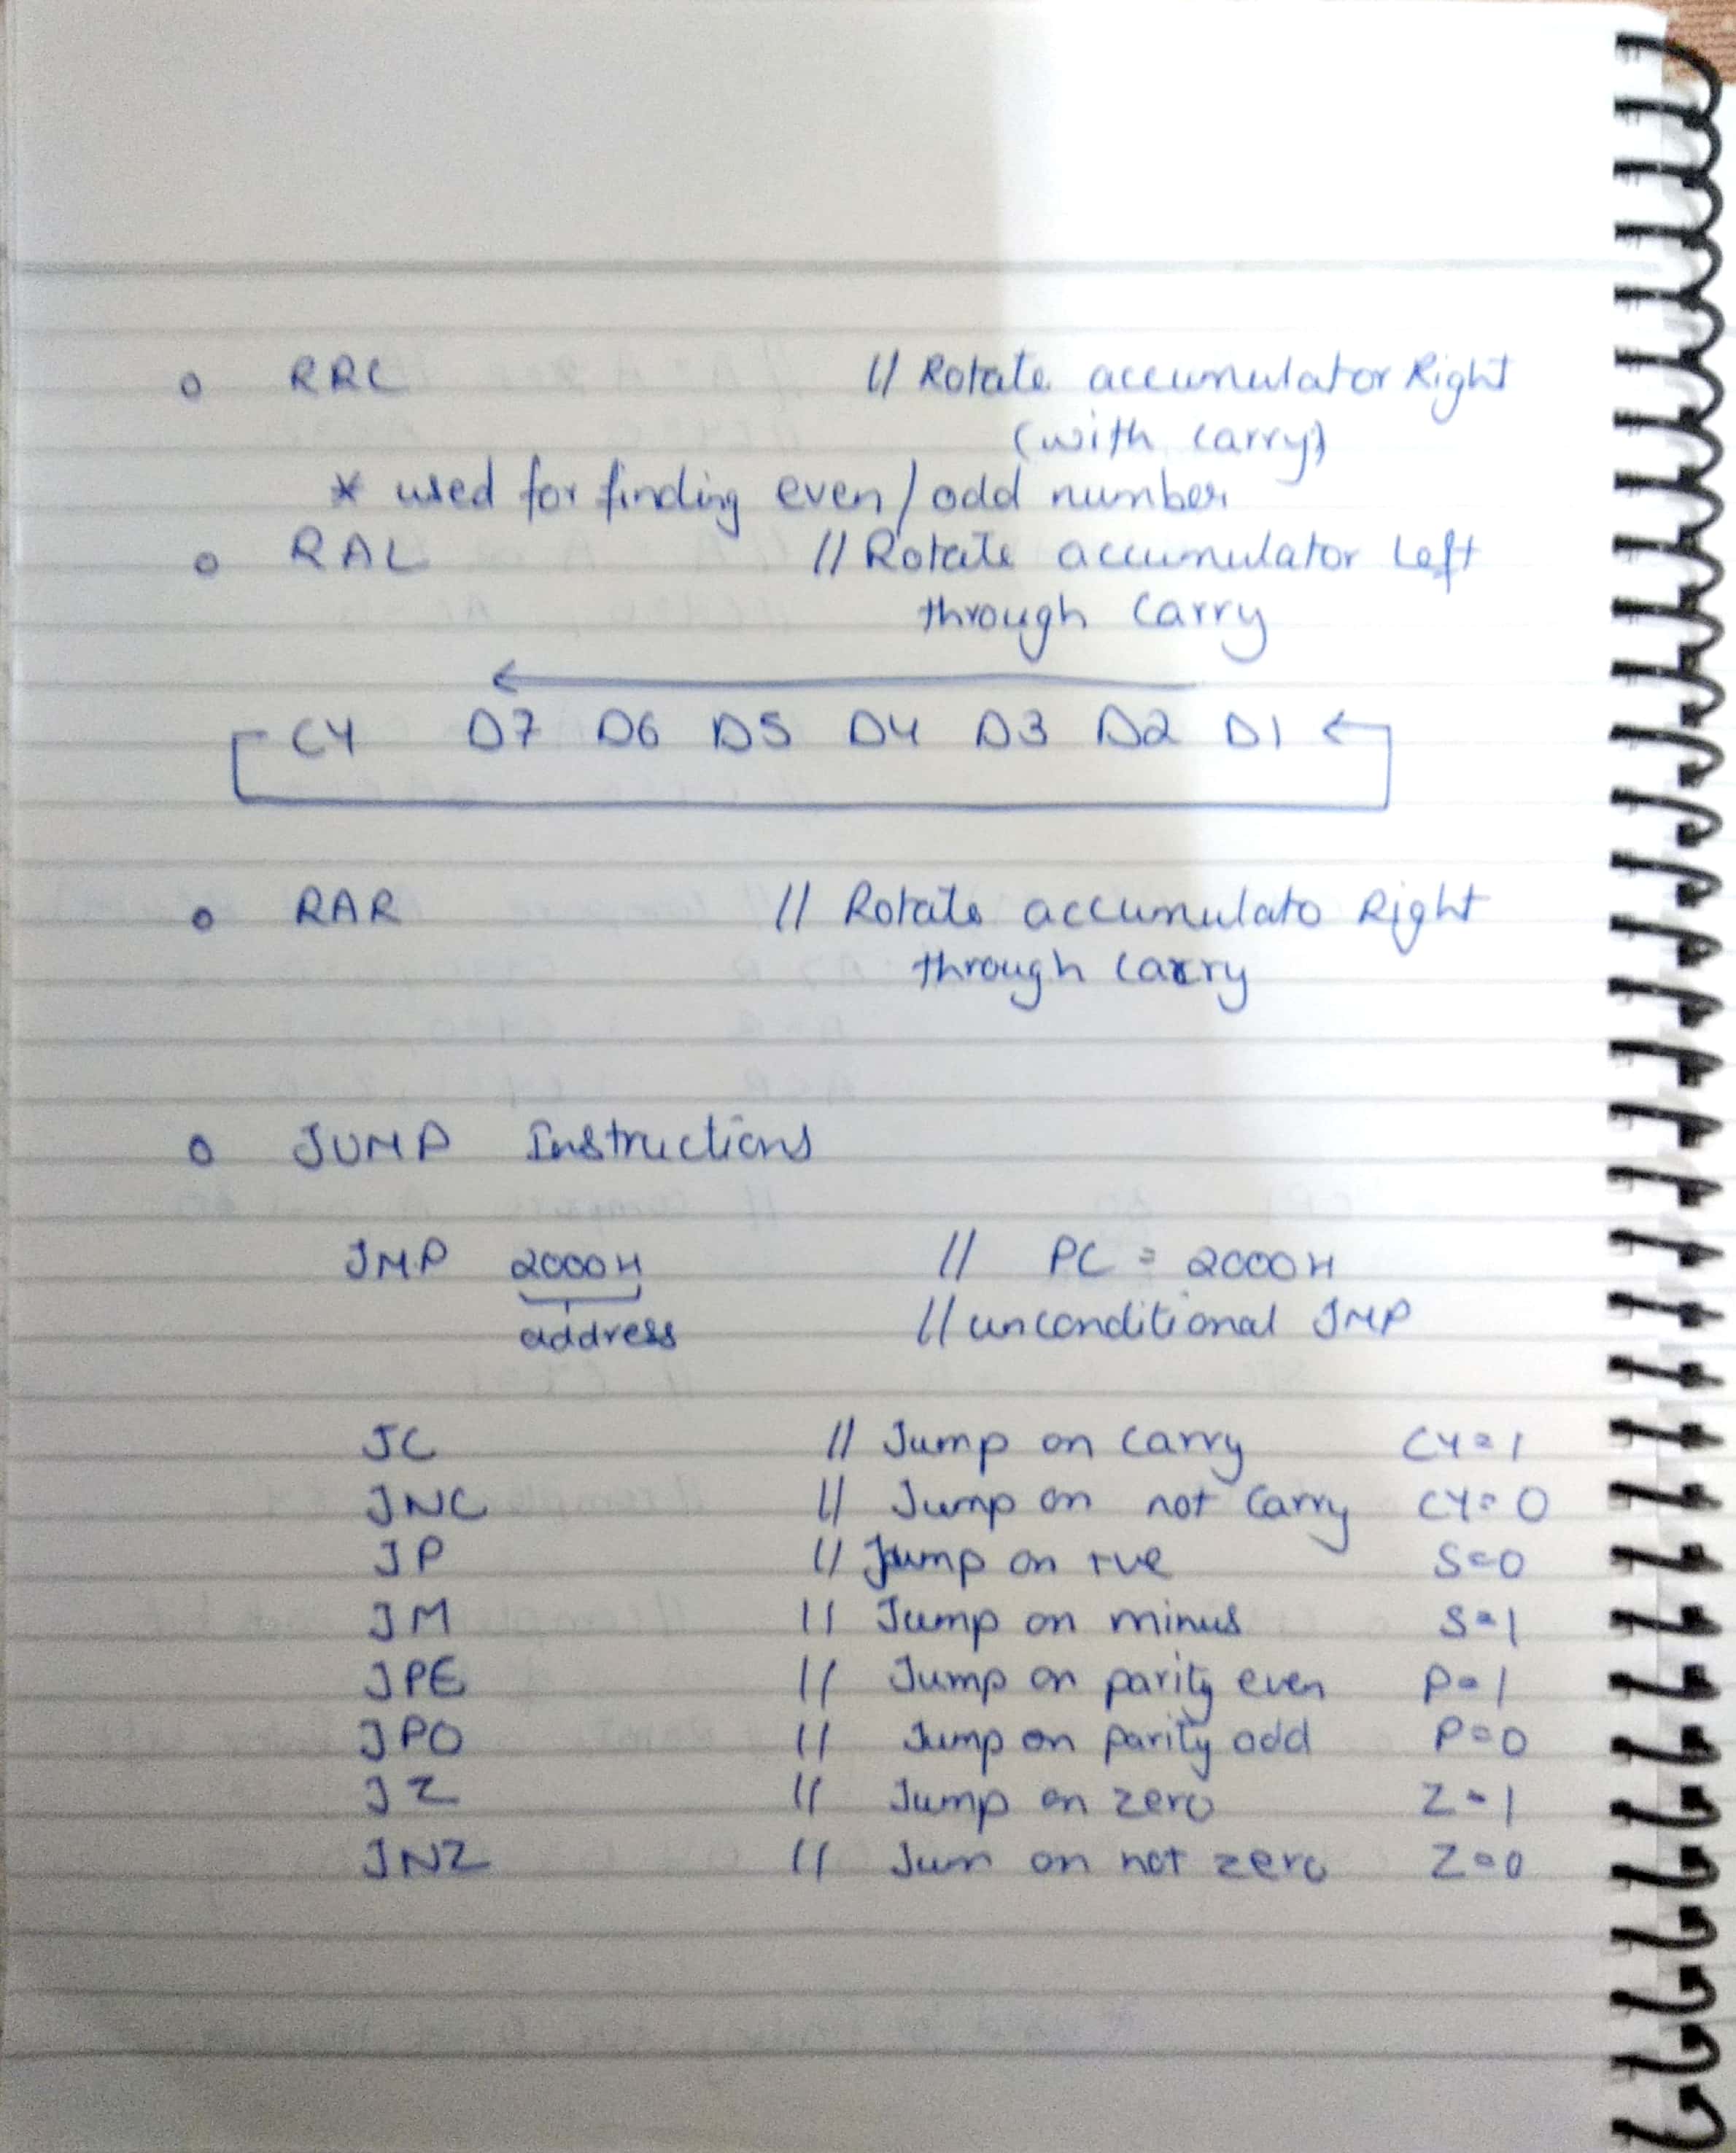 o RRC // Rotate accumulator Right
(with carry)
* used for finding even/odd number
o RAL // Rotate accumulator Left
through Carry
CY D7 D6 D5 D4 D3 D2 D1
o RAR // Rotate accumulato Right
through Carry
o JUMP Instructions
JMP 2000H // PC = 2000H
address // unconditional JMP
JC // Jump on Carry CY=1
JNC // Jump on not Carry CY=0
JP // Jump on +ve S=0
JM // Jump on minus S=1
JPE // Jump on parity even P=1
JPO // Jump on parity odd P=0
JZ // Jump on zero Z=1
JNZ // Jum on not zero Z=0